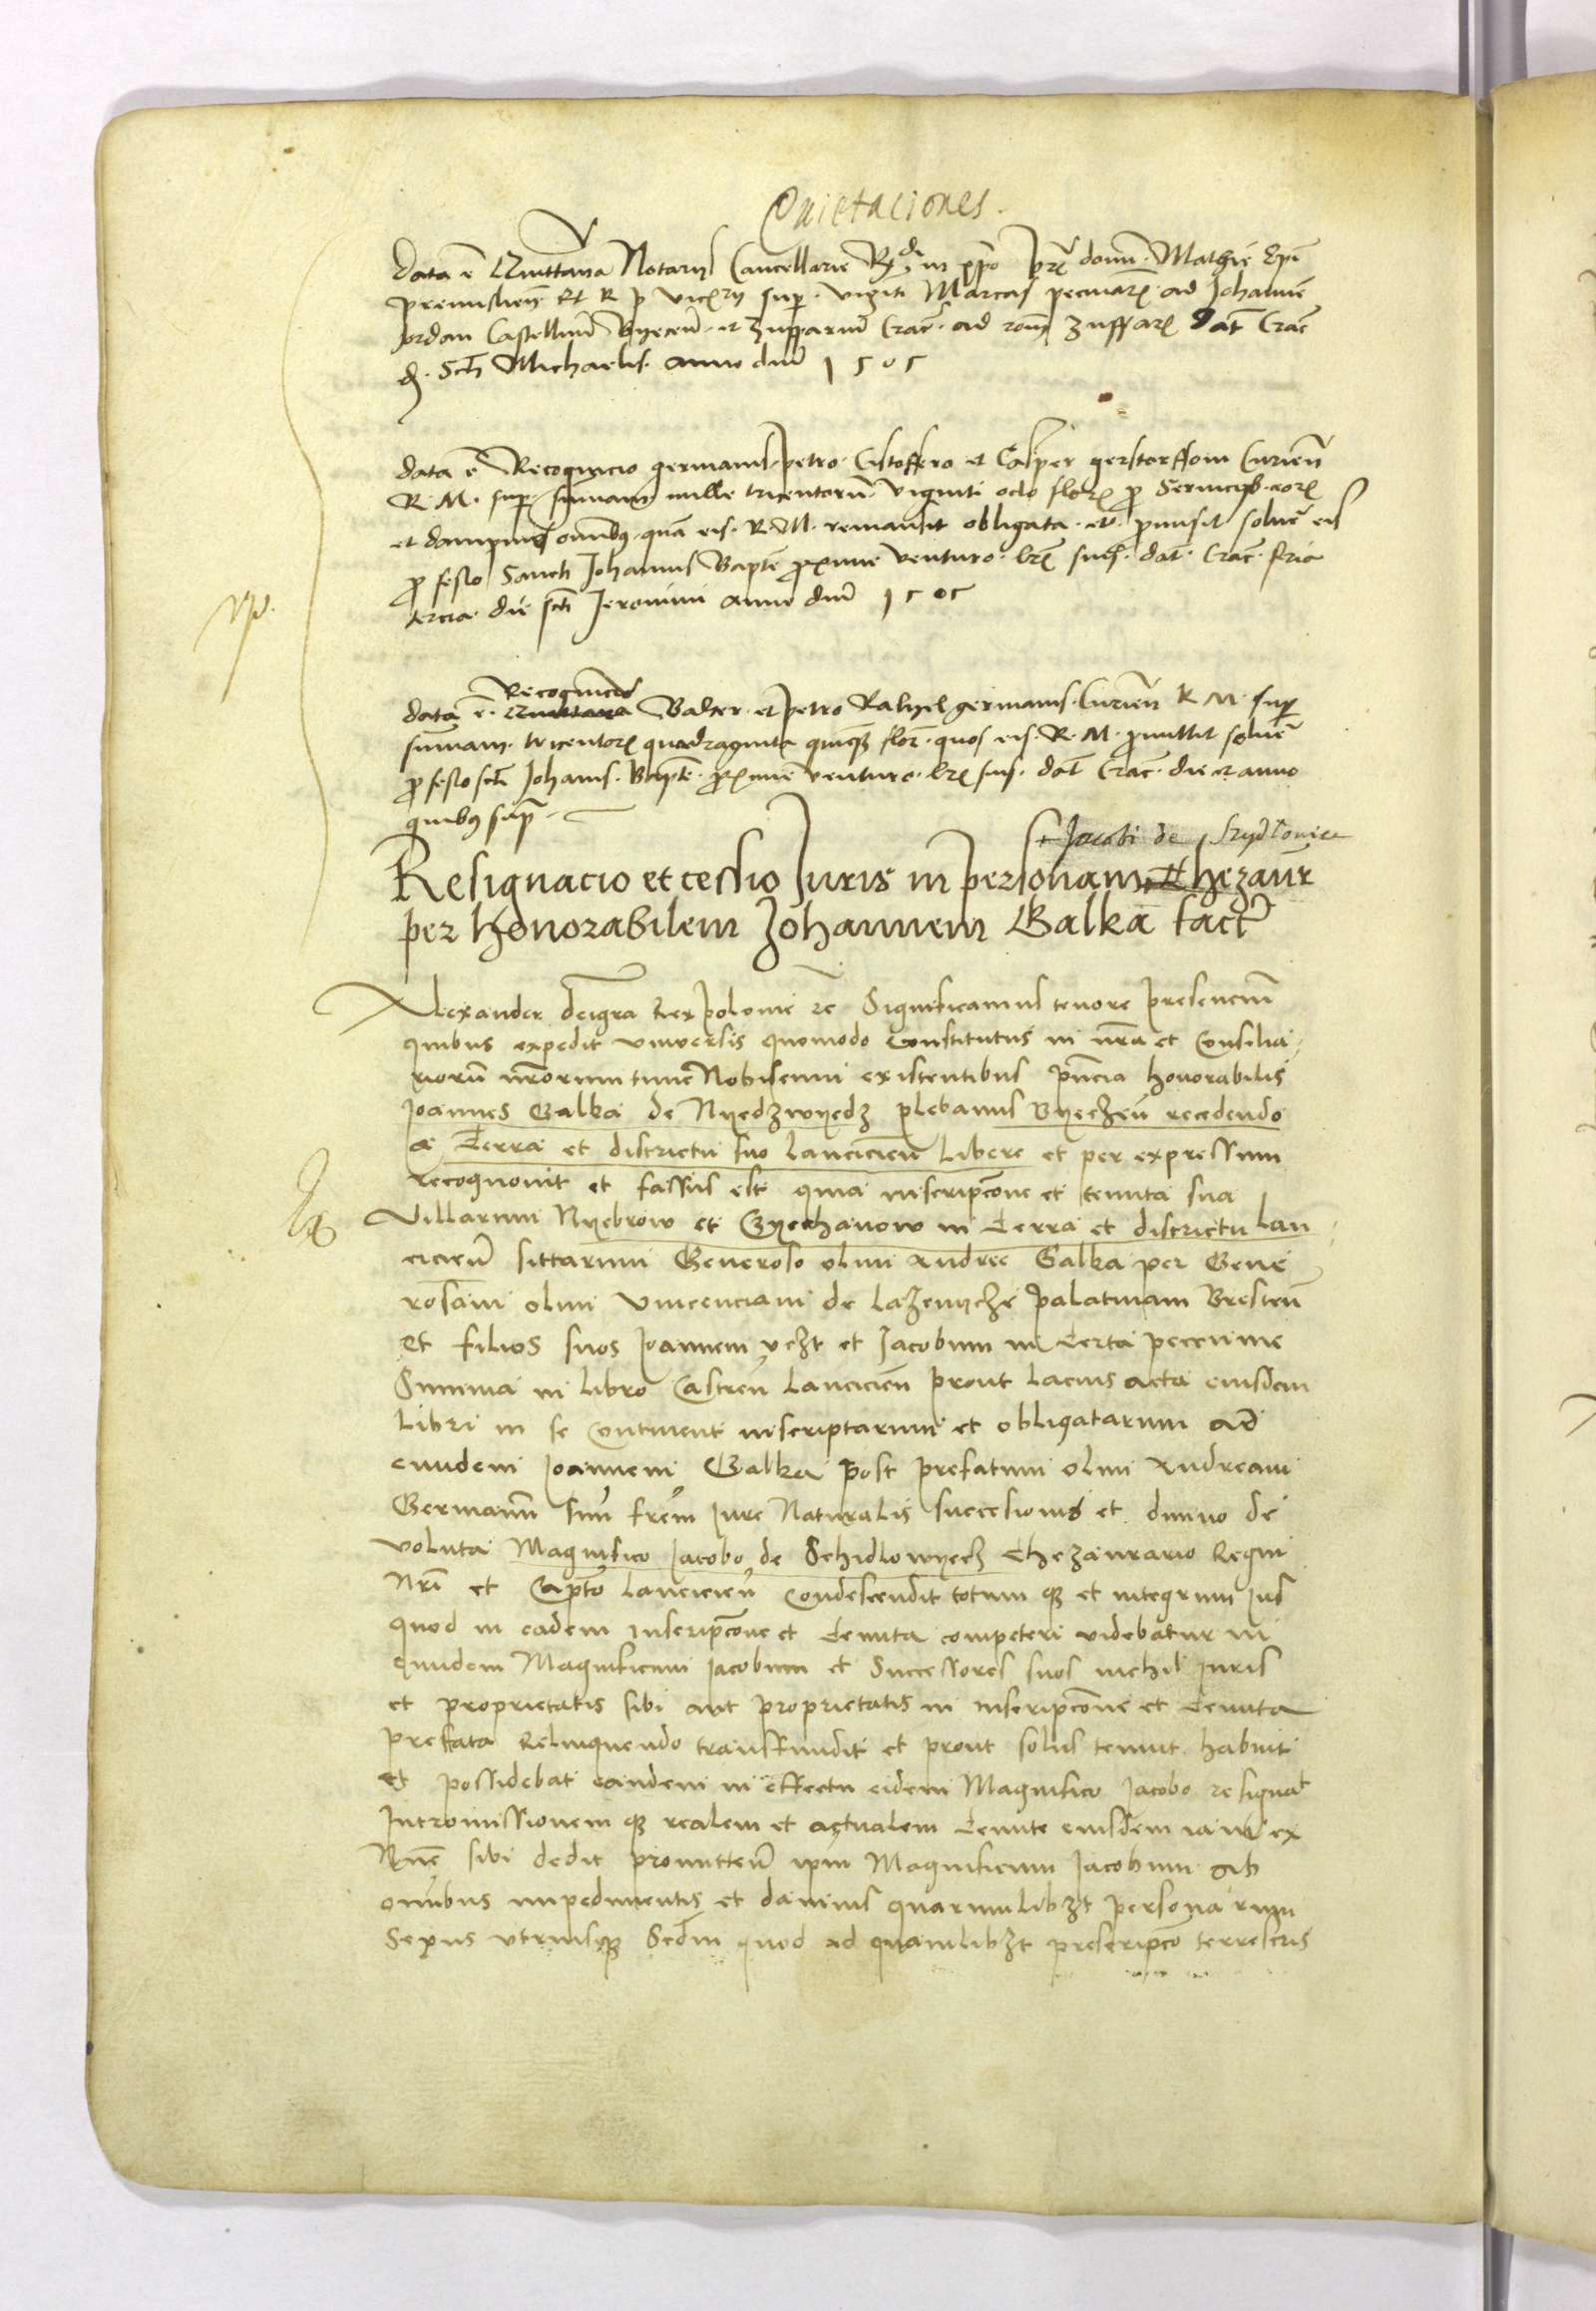 Quietaciones.
data ē Quittancia Notarys Cancellarie Rdi in xpo pris domi. Mathie Epi
premislien et R p vicery sup. viginti Marcas pecuniarȝ ad Johannē
Jordan Castellanū Byecen. et Zupparium Crac. ad ronē zupparȝ Dat Crac
d. Scti Michaelis. anno dni 1505
data ē Recognicio germanis petro Cristoffero et Casper gerstorffom Curien
R. M. sup summam mille tricentorū viginti octo florȝ pro Serviciis eorȝ
et dampnis omnibus quā eis. R. M. remansit obligata. et promisit solvere eis
pro festo Sancti Johannis Bapte proxime venturo. lrȝ suis. dat. Crac. feria
tercia die scti Jeronimi anno dni 1505
Recognicio
data ē. Quittancia Balcer et petro germanis. Curien R M. sup
summam. tricentorȝ quadraginta quinqȝ flor. quos eis. R. M. promittit solvere
pro festo scti Johannis. Bapte. proxime venturo. lrȝ suis. dat Crac. die et anno
quibus supra
Jacobi de Szydlowiec
Resignacio et cessio Juris in personam Thezaur
per Honorabilem Johannem Galka fact
Alexander dei gra Rex polonie etc Significamus tenore presencium
quibus expedit universis quomodo constitutus in nra et Consilia
riorū nrorum tunc Nobiscum existentibus pncia honorabilis
Joannes Galka de Nyedzwyedz plebanus Byechen recedendo
a Terra et districtu suo lancicien libere et per expressum
recognovit et fassus est quia inscripcione et tenuta sua
Villarum Nyebrow et Gyechanow in Terra et districtu lan
cicien sittarum Generoso olim Andree Galka per Gene
rosam olim Vincenciam de lazenyche palatinam Bresten
et filios suos Joannem vczt et Jacobum in certa peccunie
Summa in libro Castren lancicien prout lacius acta eiusdem
libri in se continent inscriptarum et obligatarum ad
eundem Joannem Galka post prefatum olim Andream
Germanū suū frem Jure Naturalis successionis et divino de
voluta Magnifico Jacobo de Schidlowyecz Thezaurario Regni
Nri et Capto lancicien Condescendit totum qȝ et integrum ius
quod in eadem inscripcone et Tenuta competeri videbatur in
eundem Magnificum Jacobum et Successores suos nichil Juris
et proprietatis sibi aut proprietatis in inscripcone et Tenuta
preffata Relinquendo transfundit et prout solus tenuit habuit
et possidebat eandem in effectu eidem Magnifico Jacobo resignat
Intromissionem qȝ realem et actualem Tenute eiusdem iam ex
Nnc sibi dedit promitten ipm Magnificum Jacobum ab
omibus impedimentis et damnis quarumlibȝt personarum
Sexus utriusqȝ Sedm quod ad quamlibȝt prescripco terrestris